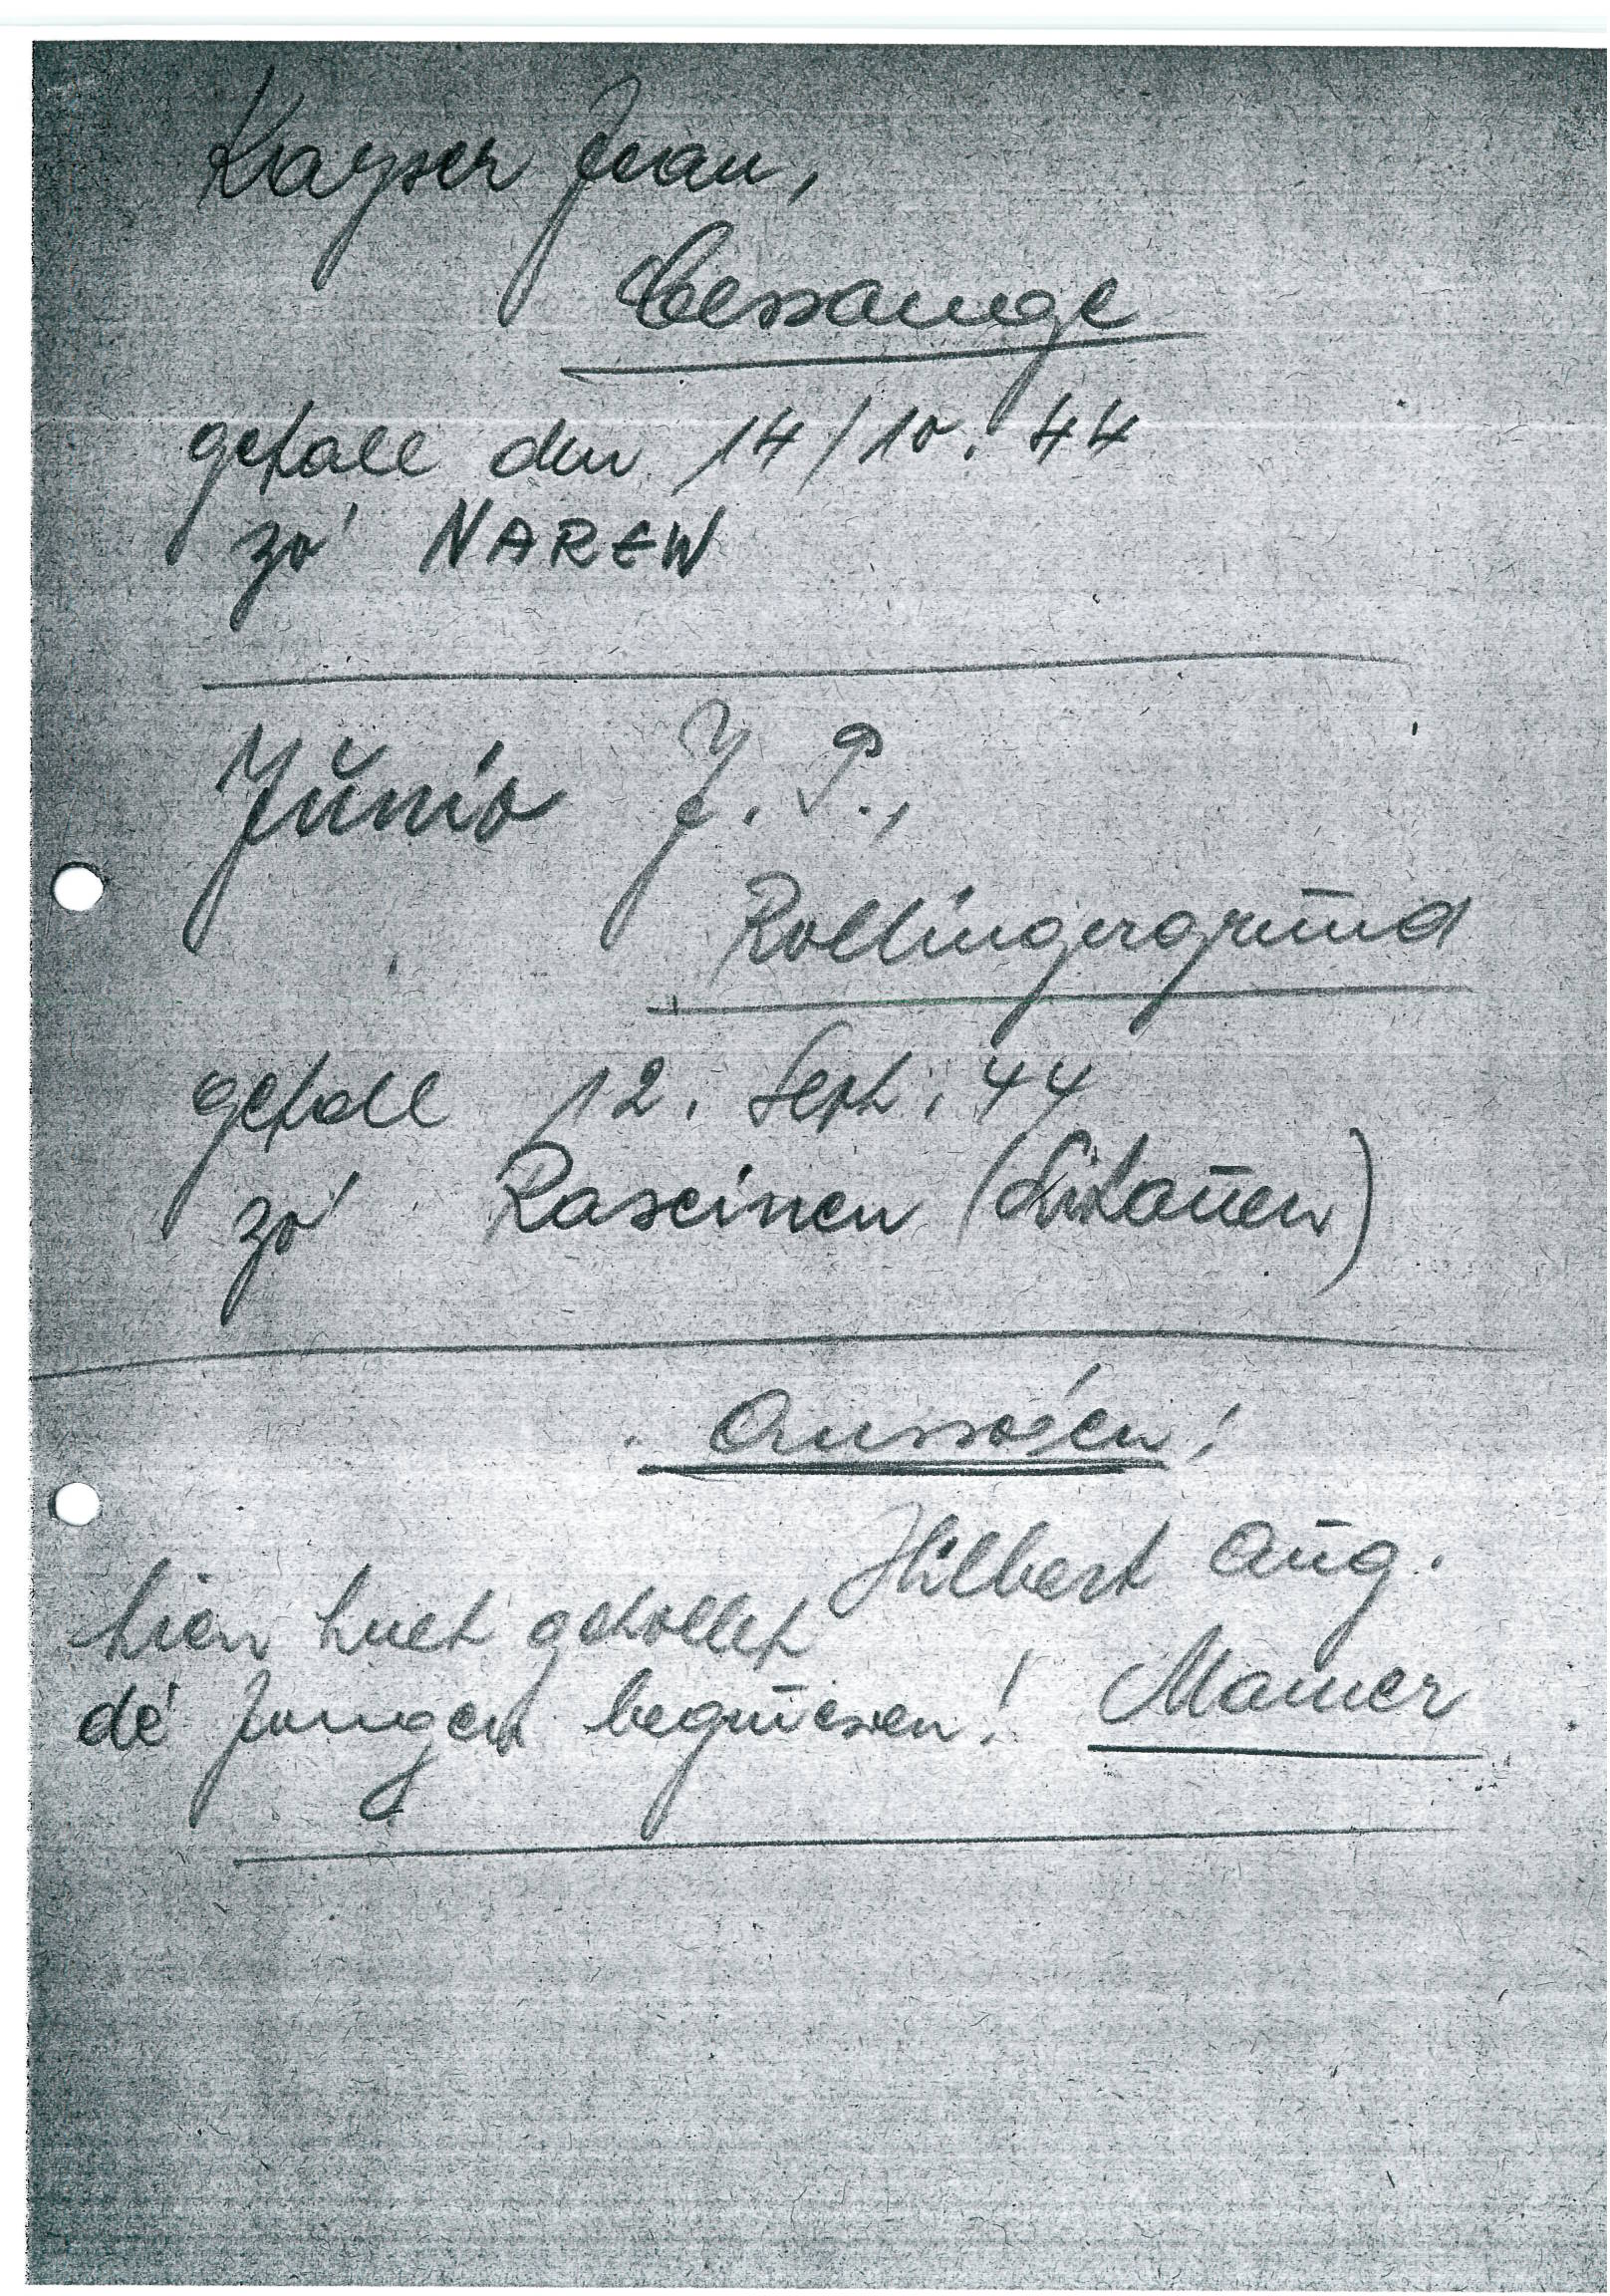 Kayser Jean,
Cessange
gefall den 14/10. 44
zo' NAREW
Jŭnio J. P.,
Rollingergrūnd
gefall 12. Sept. 44
zo' Raseinen (Litauen)
Aussoén!
Hilbert Aūg.
hien huet gehollef
dé Jongen begruewen! Mamer